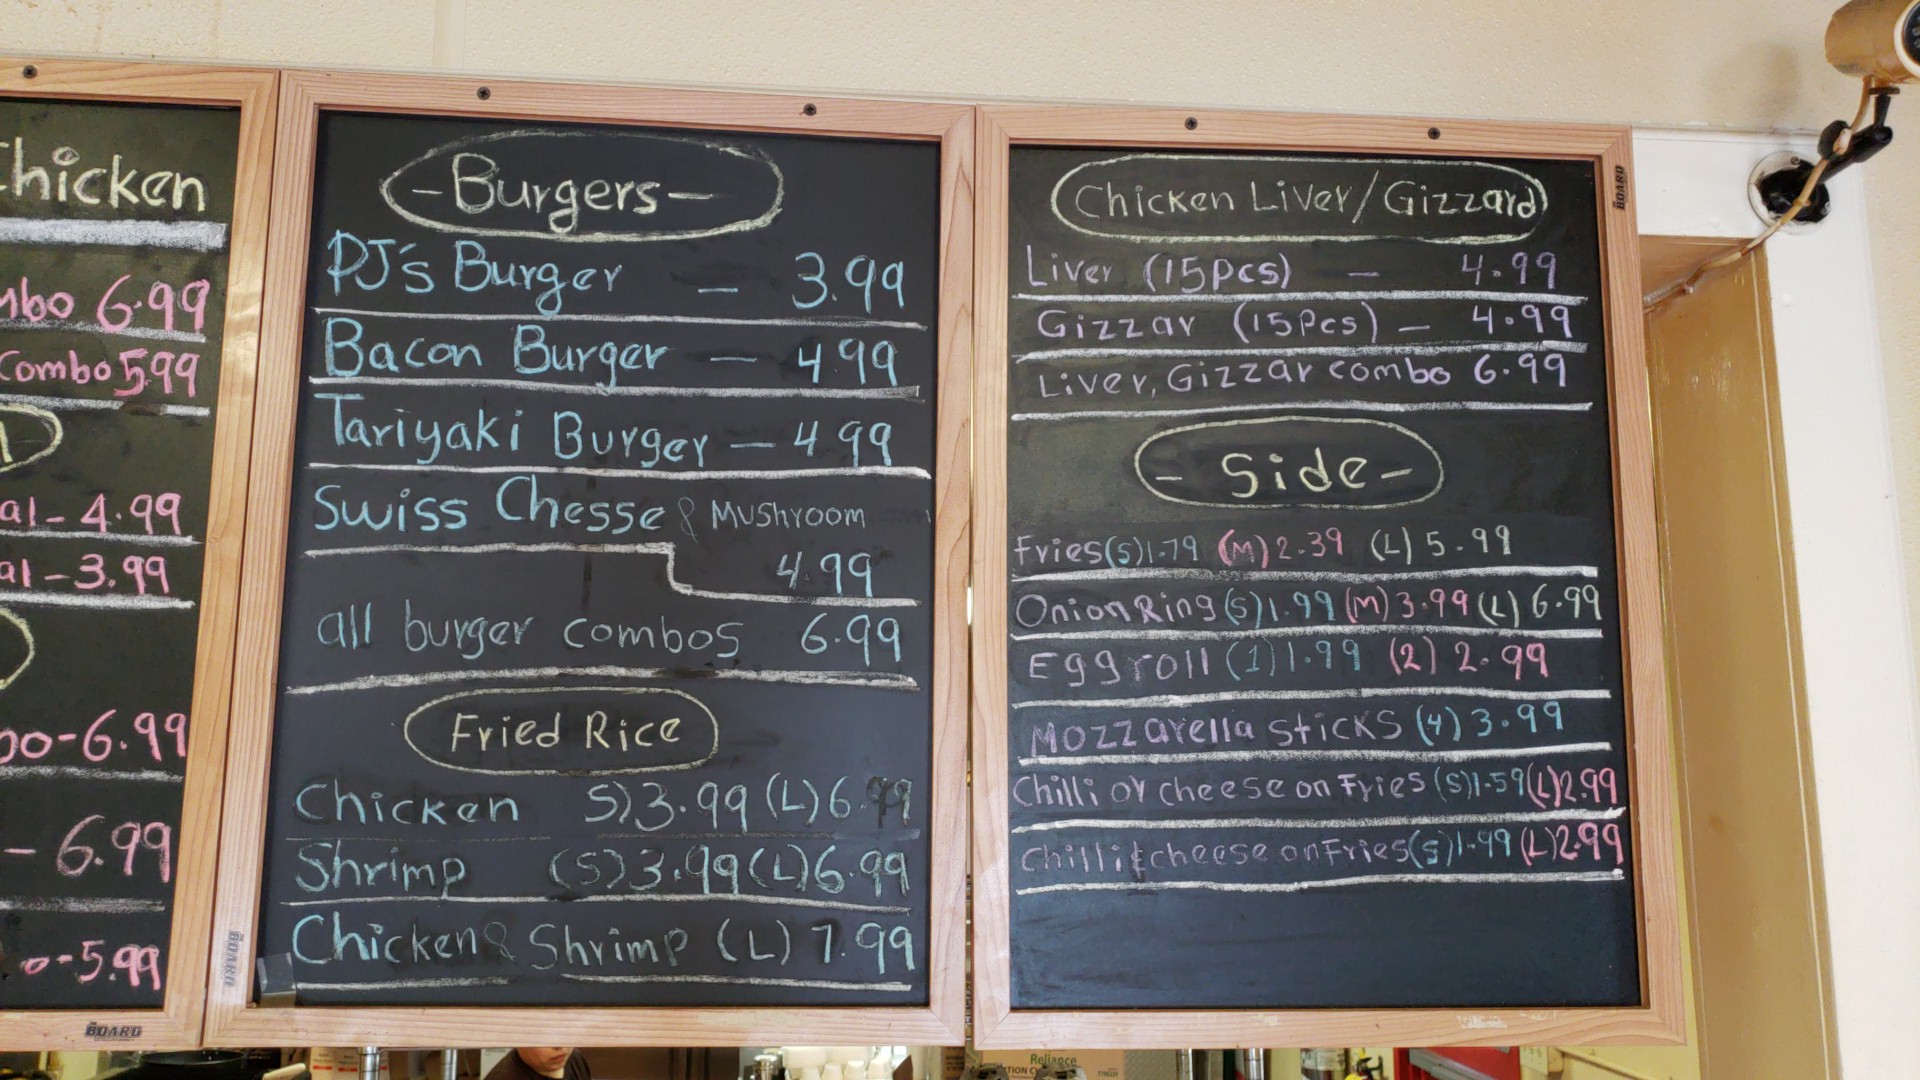 Chicken
6.99
Combo 5.99
- 4.99
- 3.99
- 6.99
- 6.99
- 5.99
BOARD
- Burgers -
PJ's Burger - 3.99
Bacon Burger - 4.99
Tariyaki Burger - 4.99
Swiss Chesse & Mushroom
4.99
all burger combos 6.99
Fried Rice
Chicken S) 3.99 (L) 6.99
Shrimp (S) 3.99 (L) 6.99
Chicken & Shrimp (L) 7.99
BOARD
Chicken Liver/Gizzard
Liver (15pcs) - 4.99
Gizzar (15Pcs) - 4.99
Liver, Gizzar combo 6.99
- Side -
Fries (S) 1.79 (M) 2.39 (L) 5.99
Onion Ring (S) 1.99 (M) 3.99 (L) 6.99
Eggroll (1) 1.99 (2) 2.99
Mozzarella sticks (4) 3.99
Chilli or cheese on Fries (S) 1.59 (L) 2.99
Chilli & cheese on Fries (S) 1.99 (L) 2.99
BOARD
Reliance